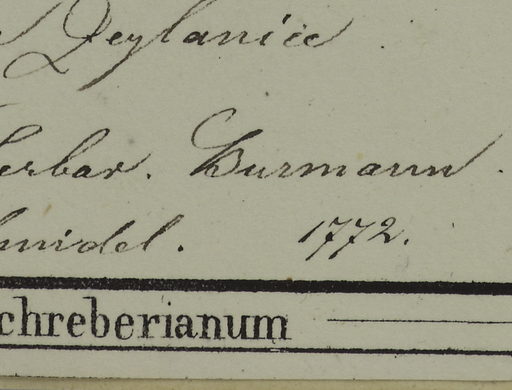 Zeylaniæ
erbar. Burmann.
midel. 1772.
chreberianum